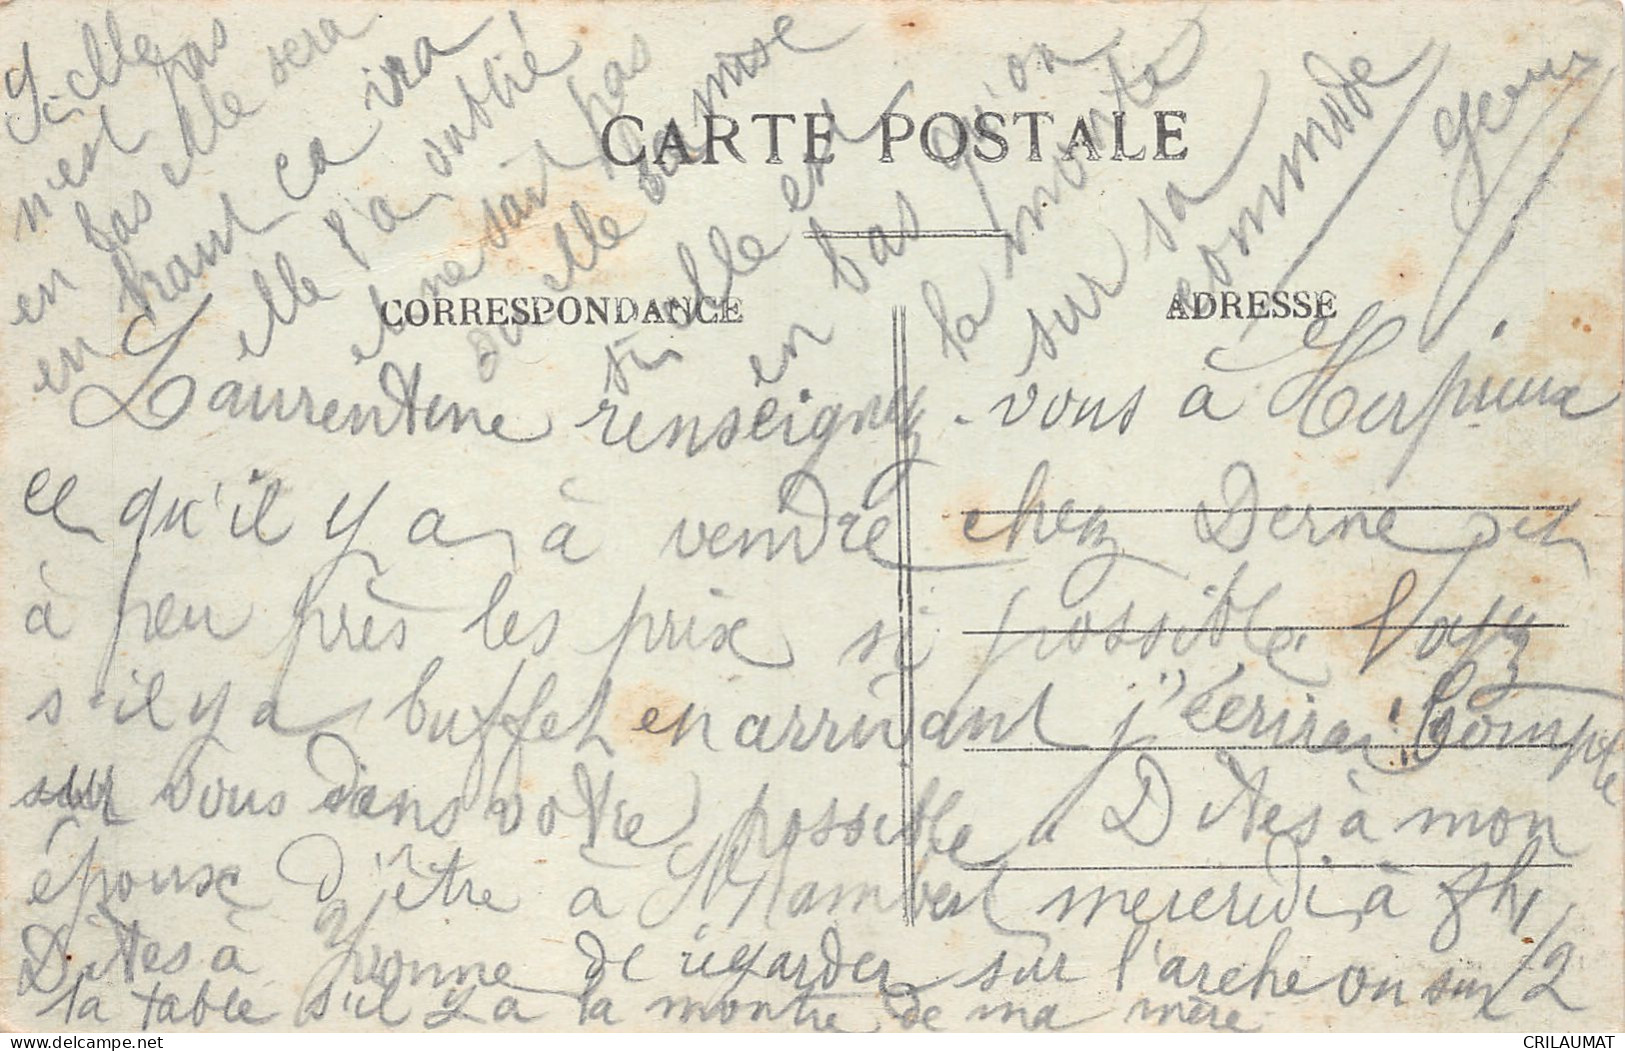 CARTE POSTALE
CORRESPONDANCE
ADRESSE
Laurentine renseignez-vous à
ce qu'il y a à vendre chez Derne et
à peu près les prix si possible Voyez
s'il y a buffet en arrivant j'écrirai Compte
sur vous dans votre possible Dites à mon
époux d'être à St Rambert mercredi à 8h 1/2
Dites à Yvonne de regarder sur l'arche ou sur
la table s'il y a la montre de ma mère
Si elle
n'est pas
en bas elle sera
en haut ça ira
elle l'a oublié
et ne sait pas
où elle l'a mise
si elle est
en bas qu'on
la monte
sur sa
commode
CRILAUMAT